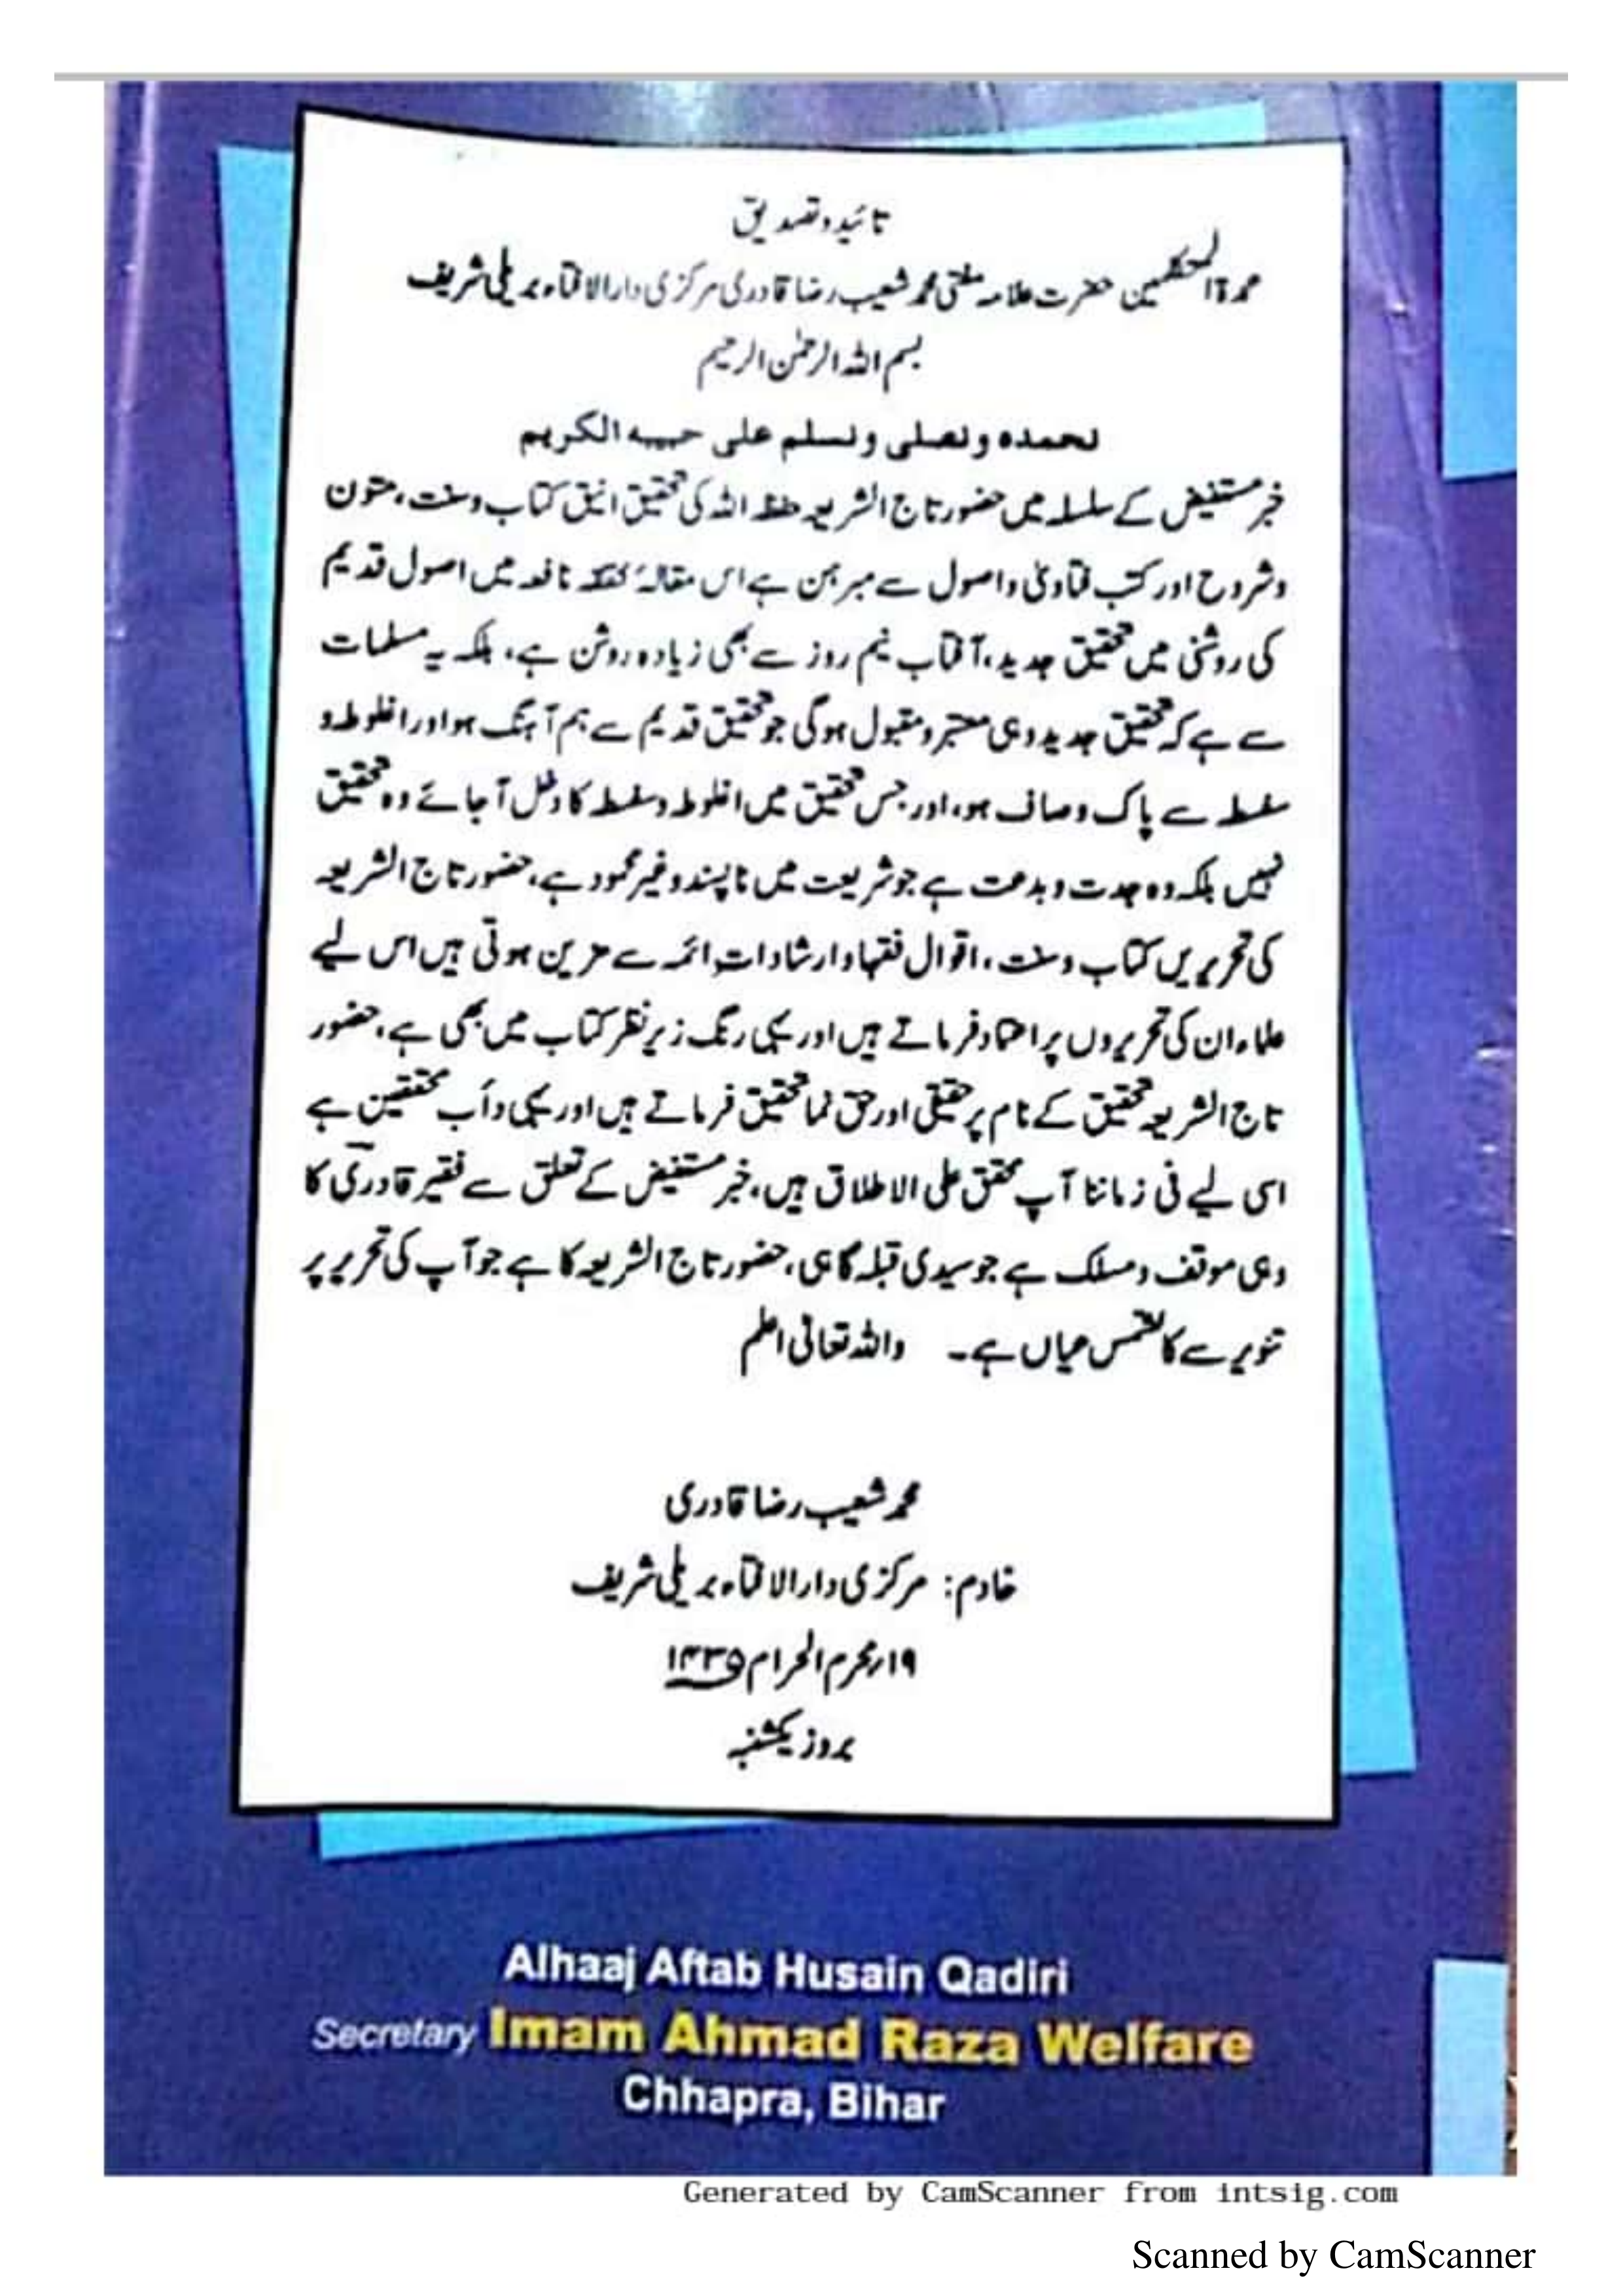 تائید و تصدیق
عمدۃ المتکلمین حضرت علامہ مفتی محمد شعیب رضا قادری مرکزی دارالافتاء بریلی شریف
بسم اللہ الرحمٰن الرحیم
نحمدہ ونصلی ونسلم علی حبیبہ الکریم
خبر مستفیض کے سلسلہ میں حضور تاج الشریعہ حفظہ اللہ کی تحقیق انیق کتاب وسنت، متون
وشروح اور کتب فتاویٰ واصول سے مبرہن ہے اس مقالۂ نافعہ میں اصول قدیم
کی روشنی میں تحقیق جدید، آفتاب نیم روز سے بھی زیادہ روشن ہے، بلکہ یہ مسلمات
سے ہے کہ تحقیق جدید وہی معتبر ومقبول ہوگی جو تحقیق قدیم سے ہم آہنگ ہو اور اغلوطہ و
سفسطہ سے پاک وصاف ہو، اور جس تحقیق میں اغلوطہ وسفسطہ کا دخل آجائے وہ تحقیق
نہیں بلکہ وہ جدت وبدعت ہے جو شریعت میں ناپسند وغیر محمود ہے، حضور تاج الشریعہ
کی تحریریں کتاب وسنت، اقوال فقہا وارشادات ائمہ سے مزین ہوتی ہیں اس لیے
علماء ان کی تحریروں پر اعتماد فرماتے ہیں اور یہی رنگ زیر نظر کتاب میں بھی ہے، حضور
تاج الشریعہ تحقیق کے نام پر حقیقی اور حق نما تحقیق فرماتے ہیں اور یہی دأب محققین ہے
اسی لیے فی زماننا آپ محقق علی الاطلاق ہیں، خبر مستفیض کے تعلق سے فقیر قادری کا
وہی موقف ومسلک ہے جو سیدی قبلہ گاہی، حضور تاج الشریعہ کا ہے جو آپ کی تحریر پر
تنویر سے کالشمس عیاں ہے۔ واللہ تعالیٰ اعلم
محمد شعیب رضا قادری
خادم: مرکزی دارالافتاء بریلی شریف
۱۹؍محرم الحرام ۱۴۳۵
بروز یکشنبہ
Alhaaj Aftab Husain Qadiri
Secretary Imam Ahmad Raza Welfare
Chhapra, Bihar
Generated by CamScanner from intsig.com
Scanned by CamScanner